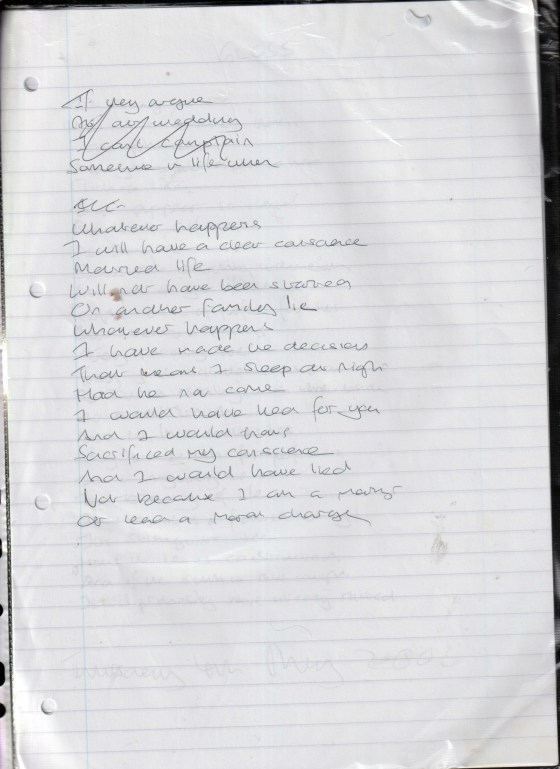 If they argue
At our wedding
I can't complain
Someone in life when
Whatever happens
I will have a clear conscience
Married life
Will not have been started
On another family lie
Whatever happens
I have made the decision
That means I sleep at night
Had he not come
I would have lied for you
And I would have
Sacrificed my conscience
And I would have lied
Not because I am a martyr
Or lead a moral charge